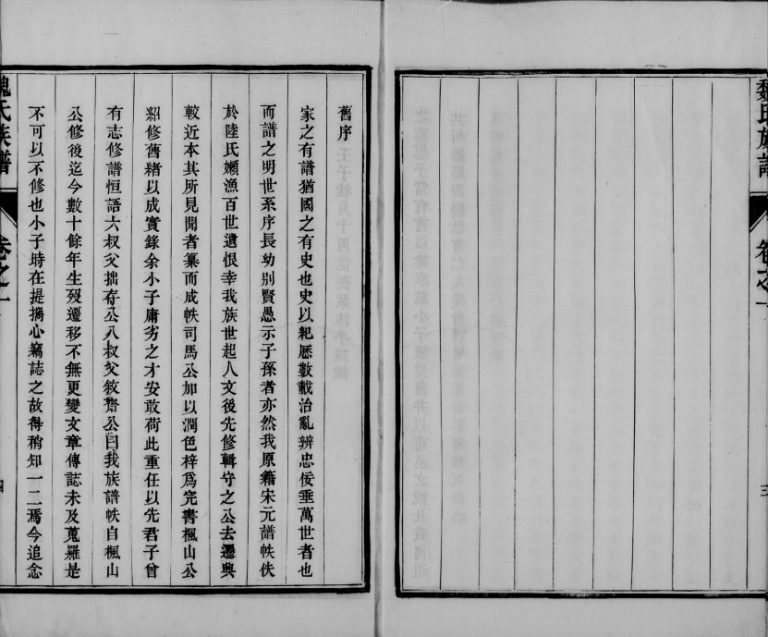 魏氏族譜
卷之一
三
舊序
家之有譜猶國之有史也史以紀歷數載治亂辨忠佞垂萬世者也
而譜之明世系序長幼別賢愚示子孫者亦然我原籍宋元譜帙佚
於陸氏嬾漁百世遺恨幸我族世起人文後先修輯守之公去遷與
較近本其所見聞者纂而成帙司馬公加以潤色梓爲完書楓山公
紹修舊緒以成實錄余小子庸劣之才安敢荷此重任以先君子曾
有志修譜恒語六叔父拙存公八叔父敘齋公曰我族譜帙自楓山
公修後迄今數十餘年生歿遷移不無更變文章傳誌未及蒐羅是
不可以不修也小子時在提攜心竊誌之故得稍知一二焉今追念
魏氏族譜
卷之一
四